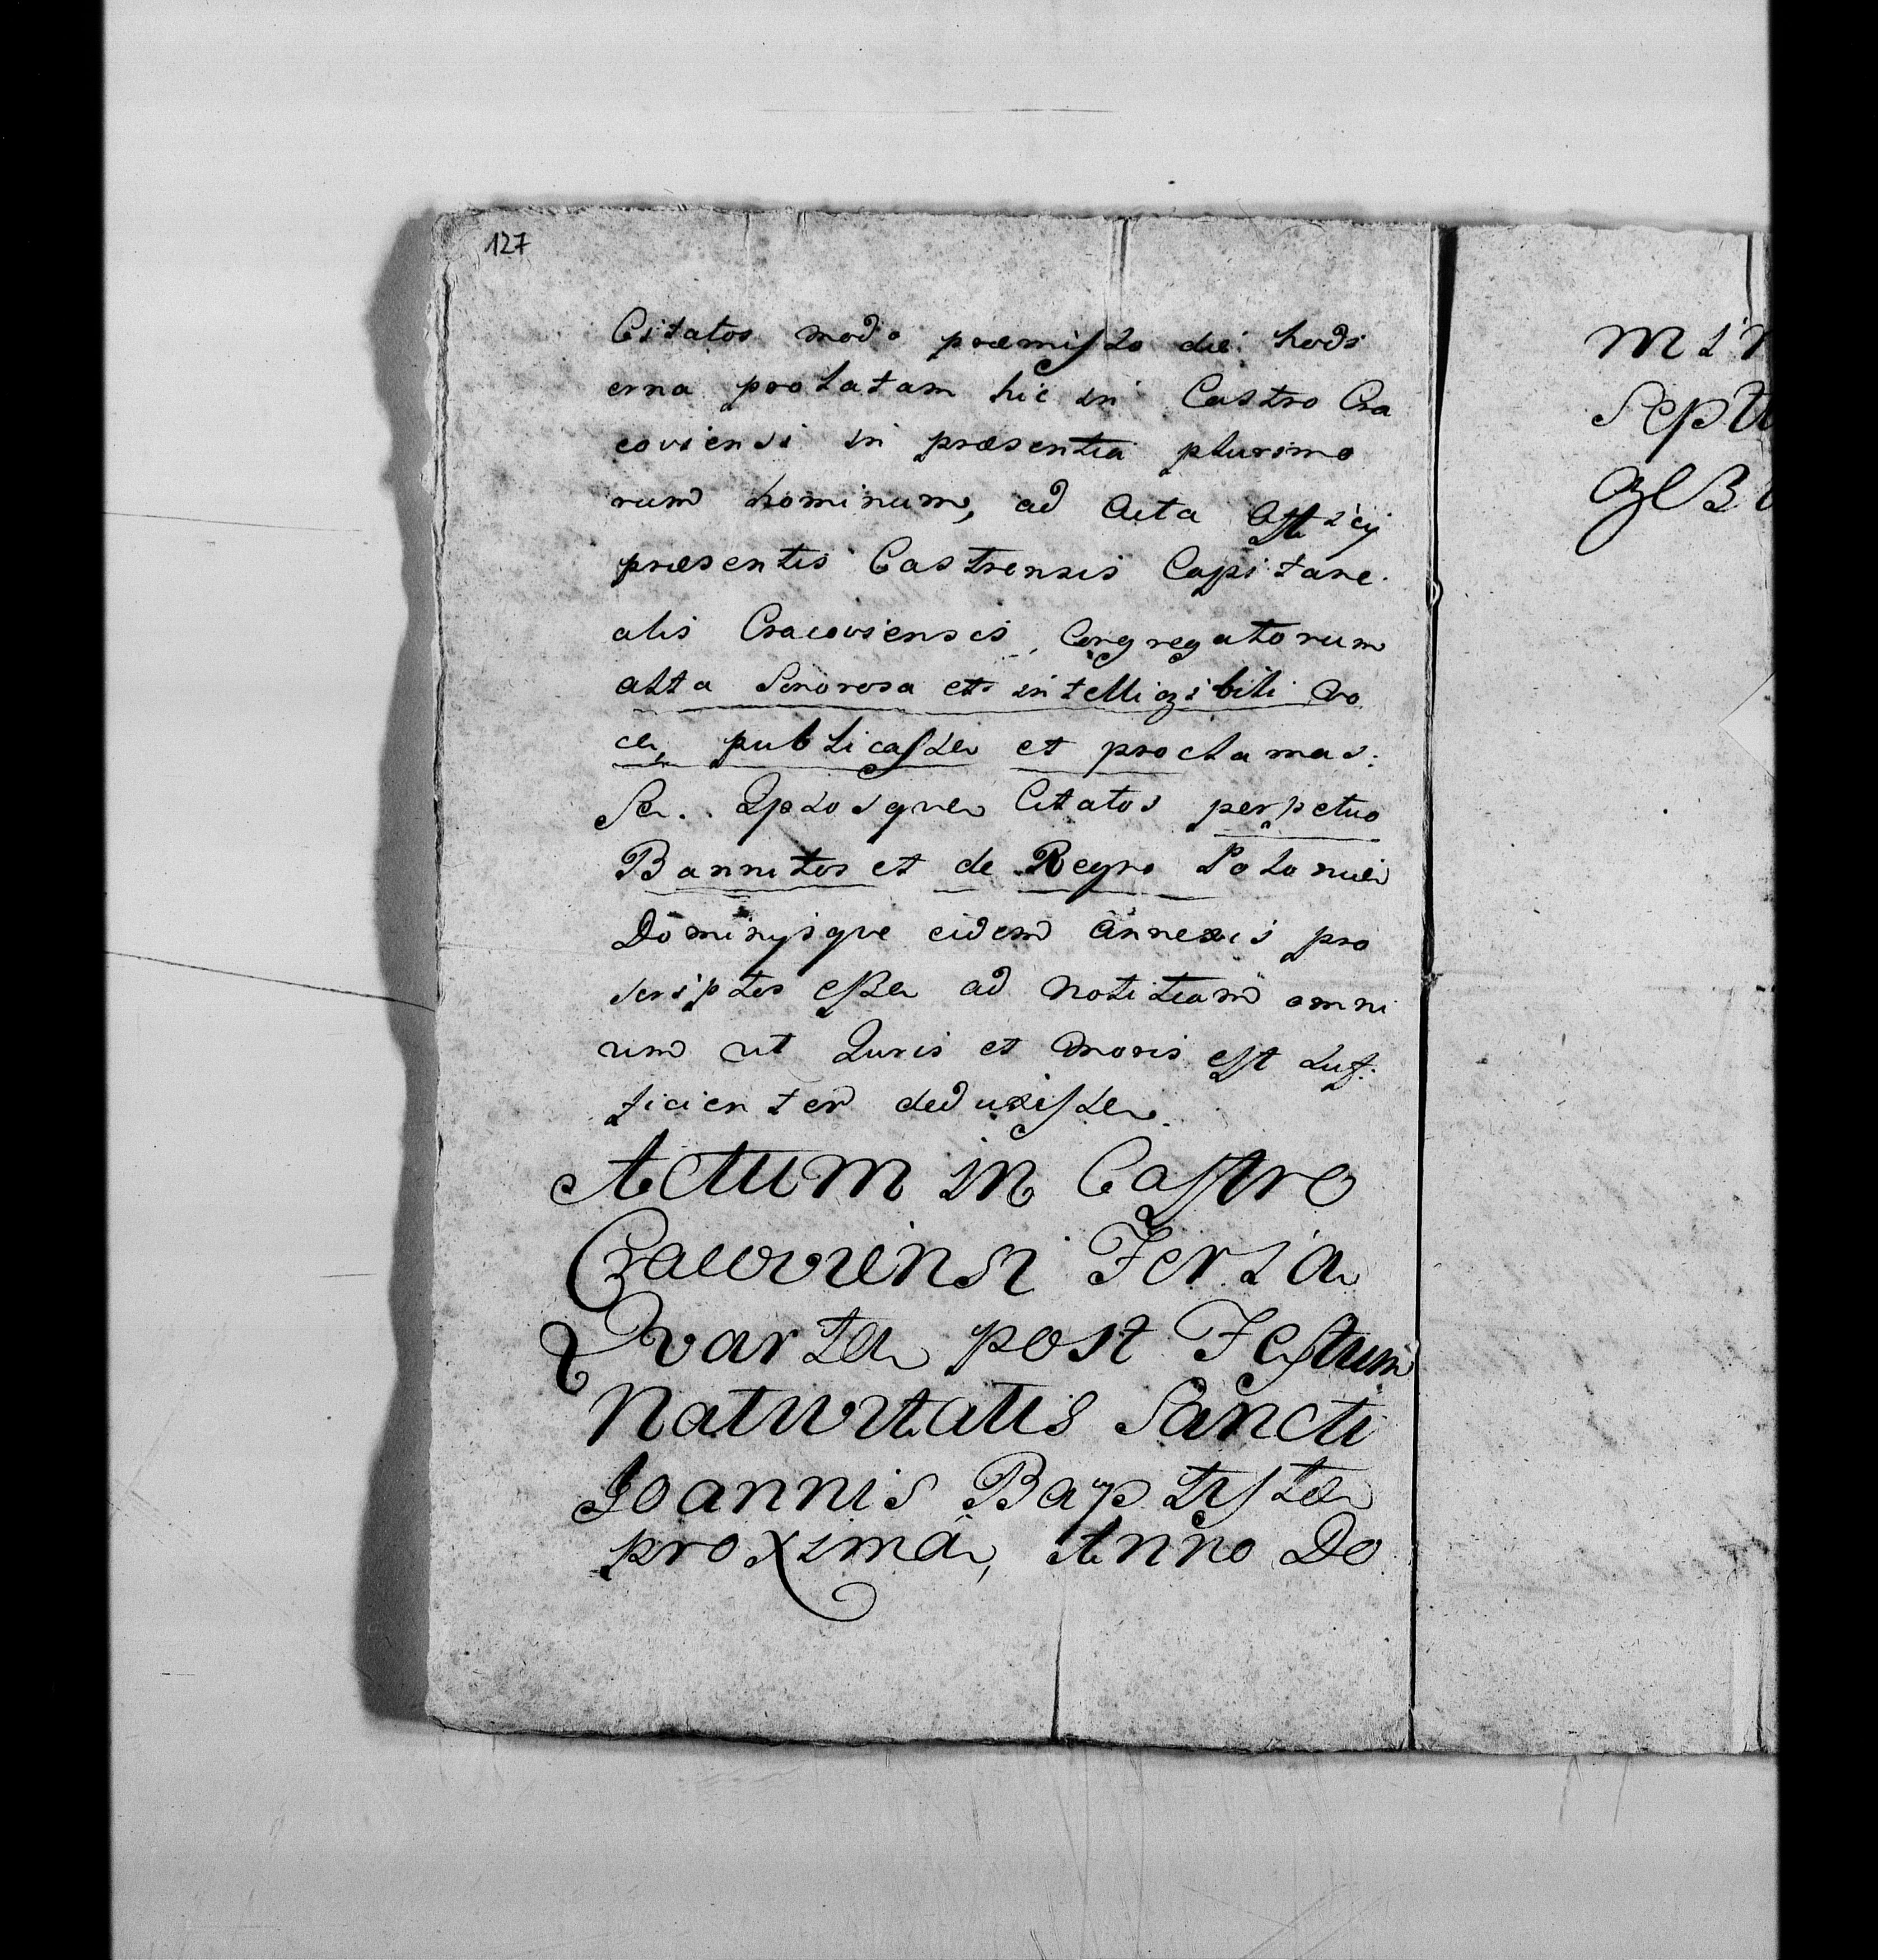 127
Citatos modo præmisso die hodi
erna prolatam hic in Castro Cra
coviensi in præsentia plurimo
rum hominum, ad Acta Officij
præsentis Castrensis Capitane
alis Cracoviensis, Congregatorum
alta Sonorosa et intelligibili vo
ce, publicasse et proclamas:
se. Ipsosque Citatos perpetuo
Bannitos et de Regno Poloniæ
Dominijsque eidem Annexis pro
scriptos esse ad notitiam omni
um ut Juris et moris est suf:
ficienter deduxisse.
Actum in Castro
Cracoviensi Feria
Quarta post Festum
Nativitatis Sancti
Joannis Baptistæ
proxima, Anno Do